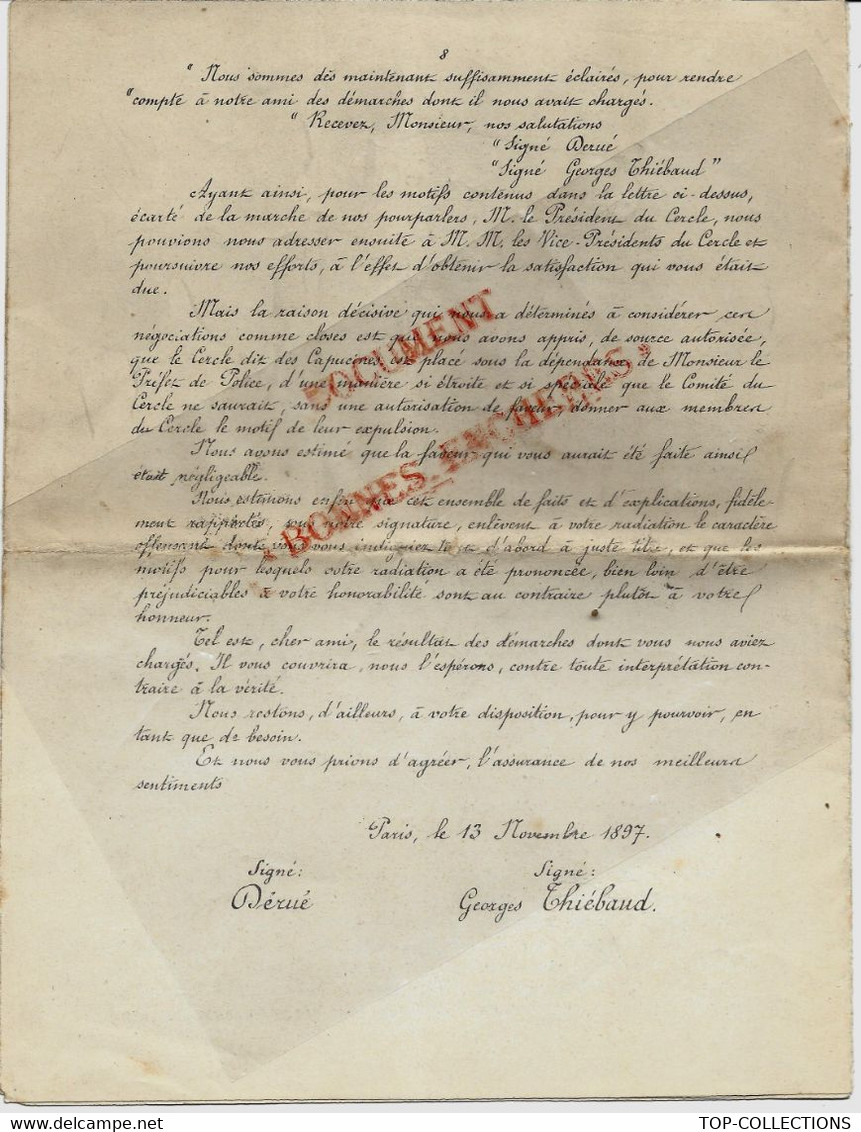 8
"Nous sommes dès maintenant suffisamment éclairés, pour rendre
"compte à notre ami des démarches dont il nous avait chargés.
"Recevez, Monsieur, nos salutations
"Signé Derué
"Signé Georges Thiébaud"
Ayant ainsi, pour les motifs contenus dans la lettre ci-dessus,
écarté de la marche de nos pourparlers, M. le Président du Cercle, nous
pouvions nous adresser ensuite à M.M. les Vice-Présidents du Cercle et
poursuivre nos efforts, à l'effet d'obtenir la satisfaction qui vous était
due.
Mais la raison décisive qui nous a déterminés à considérer ces
négociations comme closes est que nous avons appris, de source autorisée,
que le Cercle dit des Capucines est placé sous la dépendance de Monsieur le
Préfet de Police, d'une manière si étroite et si spéciale que le Comité du
Cercle ne saurait, sans une autorisation de faveur, donner aux membres
du Cercle le motif de leur expulsion.
Nous avons estimé que la faveur qui vous aurait été faite ainsi
était négligeable.
Nous estimons enfin que cet ensemble de faits et d'explications, fidèle-
ment rapportés, sous notre signature, enlèvent à votre radiation le caractère
offensant dont vous vous indigniez tout d'abord à juste titre, et que les
motifs pour lesquels votre radiation a été prononcée, bien loin d'être
préjudiciables à votre honorabilité sont au contraire plutôt à votre
honneur.
Tel est, cher ami, le résultat des démarches dont vous nous aviez
chargés. Il vous couvrira, nous l'espérons, contre toute interprétation con-
traire à la vérité.
Nous restons, d'ailleurs, à votre disposition, pour y pourvoir, en
tant que de besoin.
Et nous vous prions d'agréer, l'assurance de nos meilleurs
sentiments
Paris, le 13 Novembre 1897.
Signé: Signé:
Dérué Georges Thiébaud.
DOCUMENT
"BONNES_ENCHERES"
TOP-COLLECTIONS